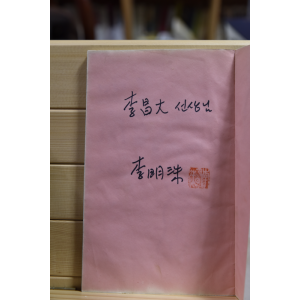 李昌大 선생님
李明洙